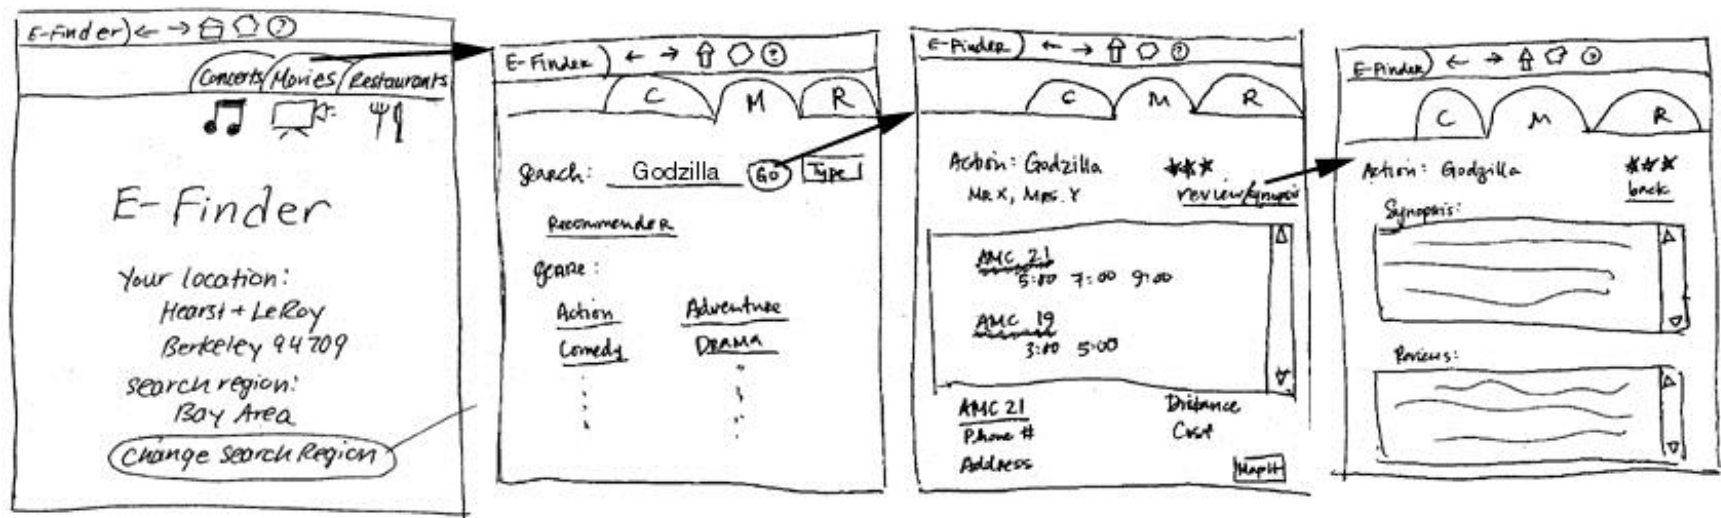 E-Finder
?
Concerts Movies Restaurants
E-Finder
Your location:
Hearst + LeRoy
Berkeley 94709
search region:
Bay Area
Change Search Region
E-Finder
?
C M R
Search: Godzilla GO Type
Recommender
Genre:
Action Adventure
Comedy Drama
E-Finder
?
C M R
Action: Godzilla ***
Mr X, Mrs. Y review/synopsis
AMC 21
5:00 7:00 9:00
AMC 19
3:00 5:00
AMC 21 Distance
Phone # Cost
Address Map It
E-Finder
?
C M R
Action: Godzilla ***
back
Synopsis:
Reviews: